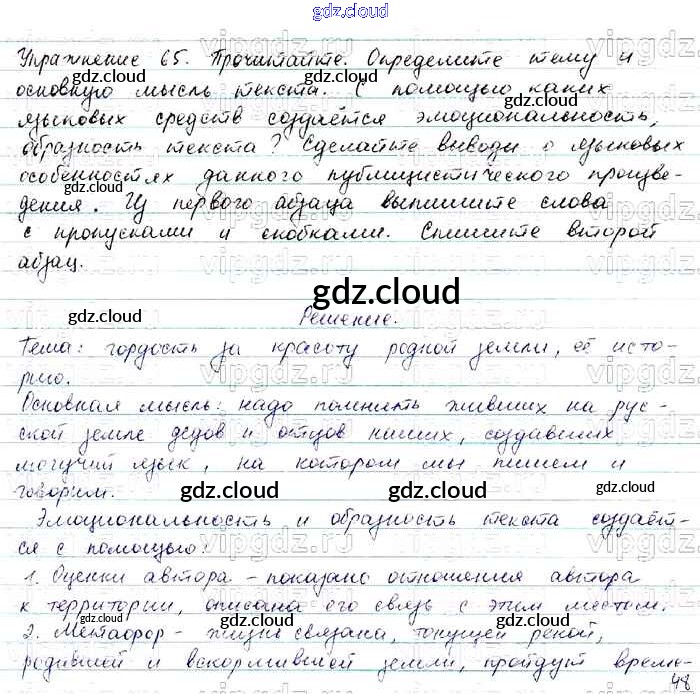 gdz.cloud
Упражнение 65. Прочитайте. Определите тему и
основную мысль текста. С помощью каких
языковых средств создаётся эмоциональность,
образность текста? Сделайте выводы о языковых
особенностях данного публицистического произве-
дения. Из первого абзаца выпишите слова
с пропусками и скобками. Спишите второй
абзац.
gdz.cloud
Решение.
Тема: гордость за красоту родной земли, её исто-
рию.
Основная мысль: надо помнить живших на рус-
ской земле дедов и отцов наших, создавших
могучий язык, на котором мы пишем и
говорим.
Эмоциональность и образность текста создаёт-
ся с помощью:
1. Оценки автора - показано отношения автора
к территории, описана его связь с этим местом.
2. Метафор - жизнь связана, текущей рекой,
родившей и вскормившей земли, пройдут време-
48